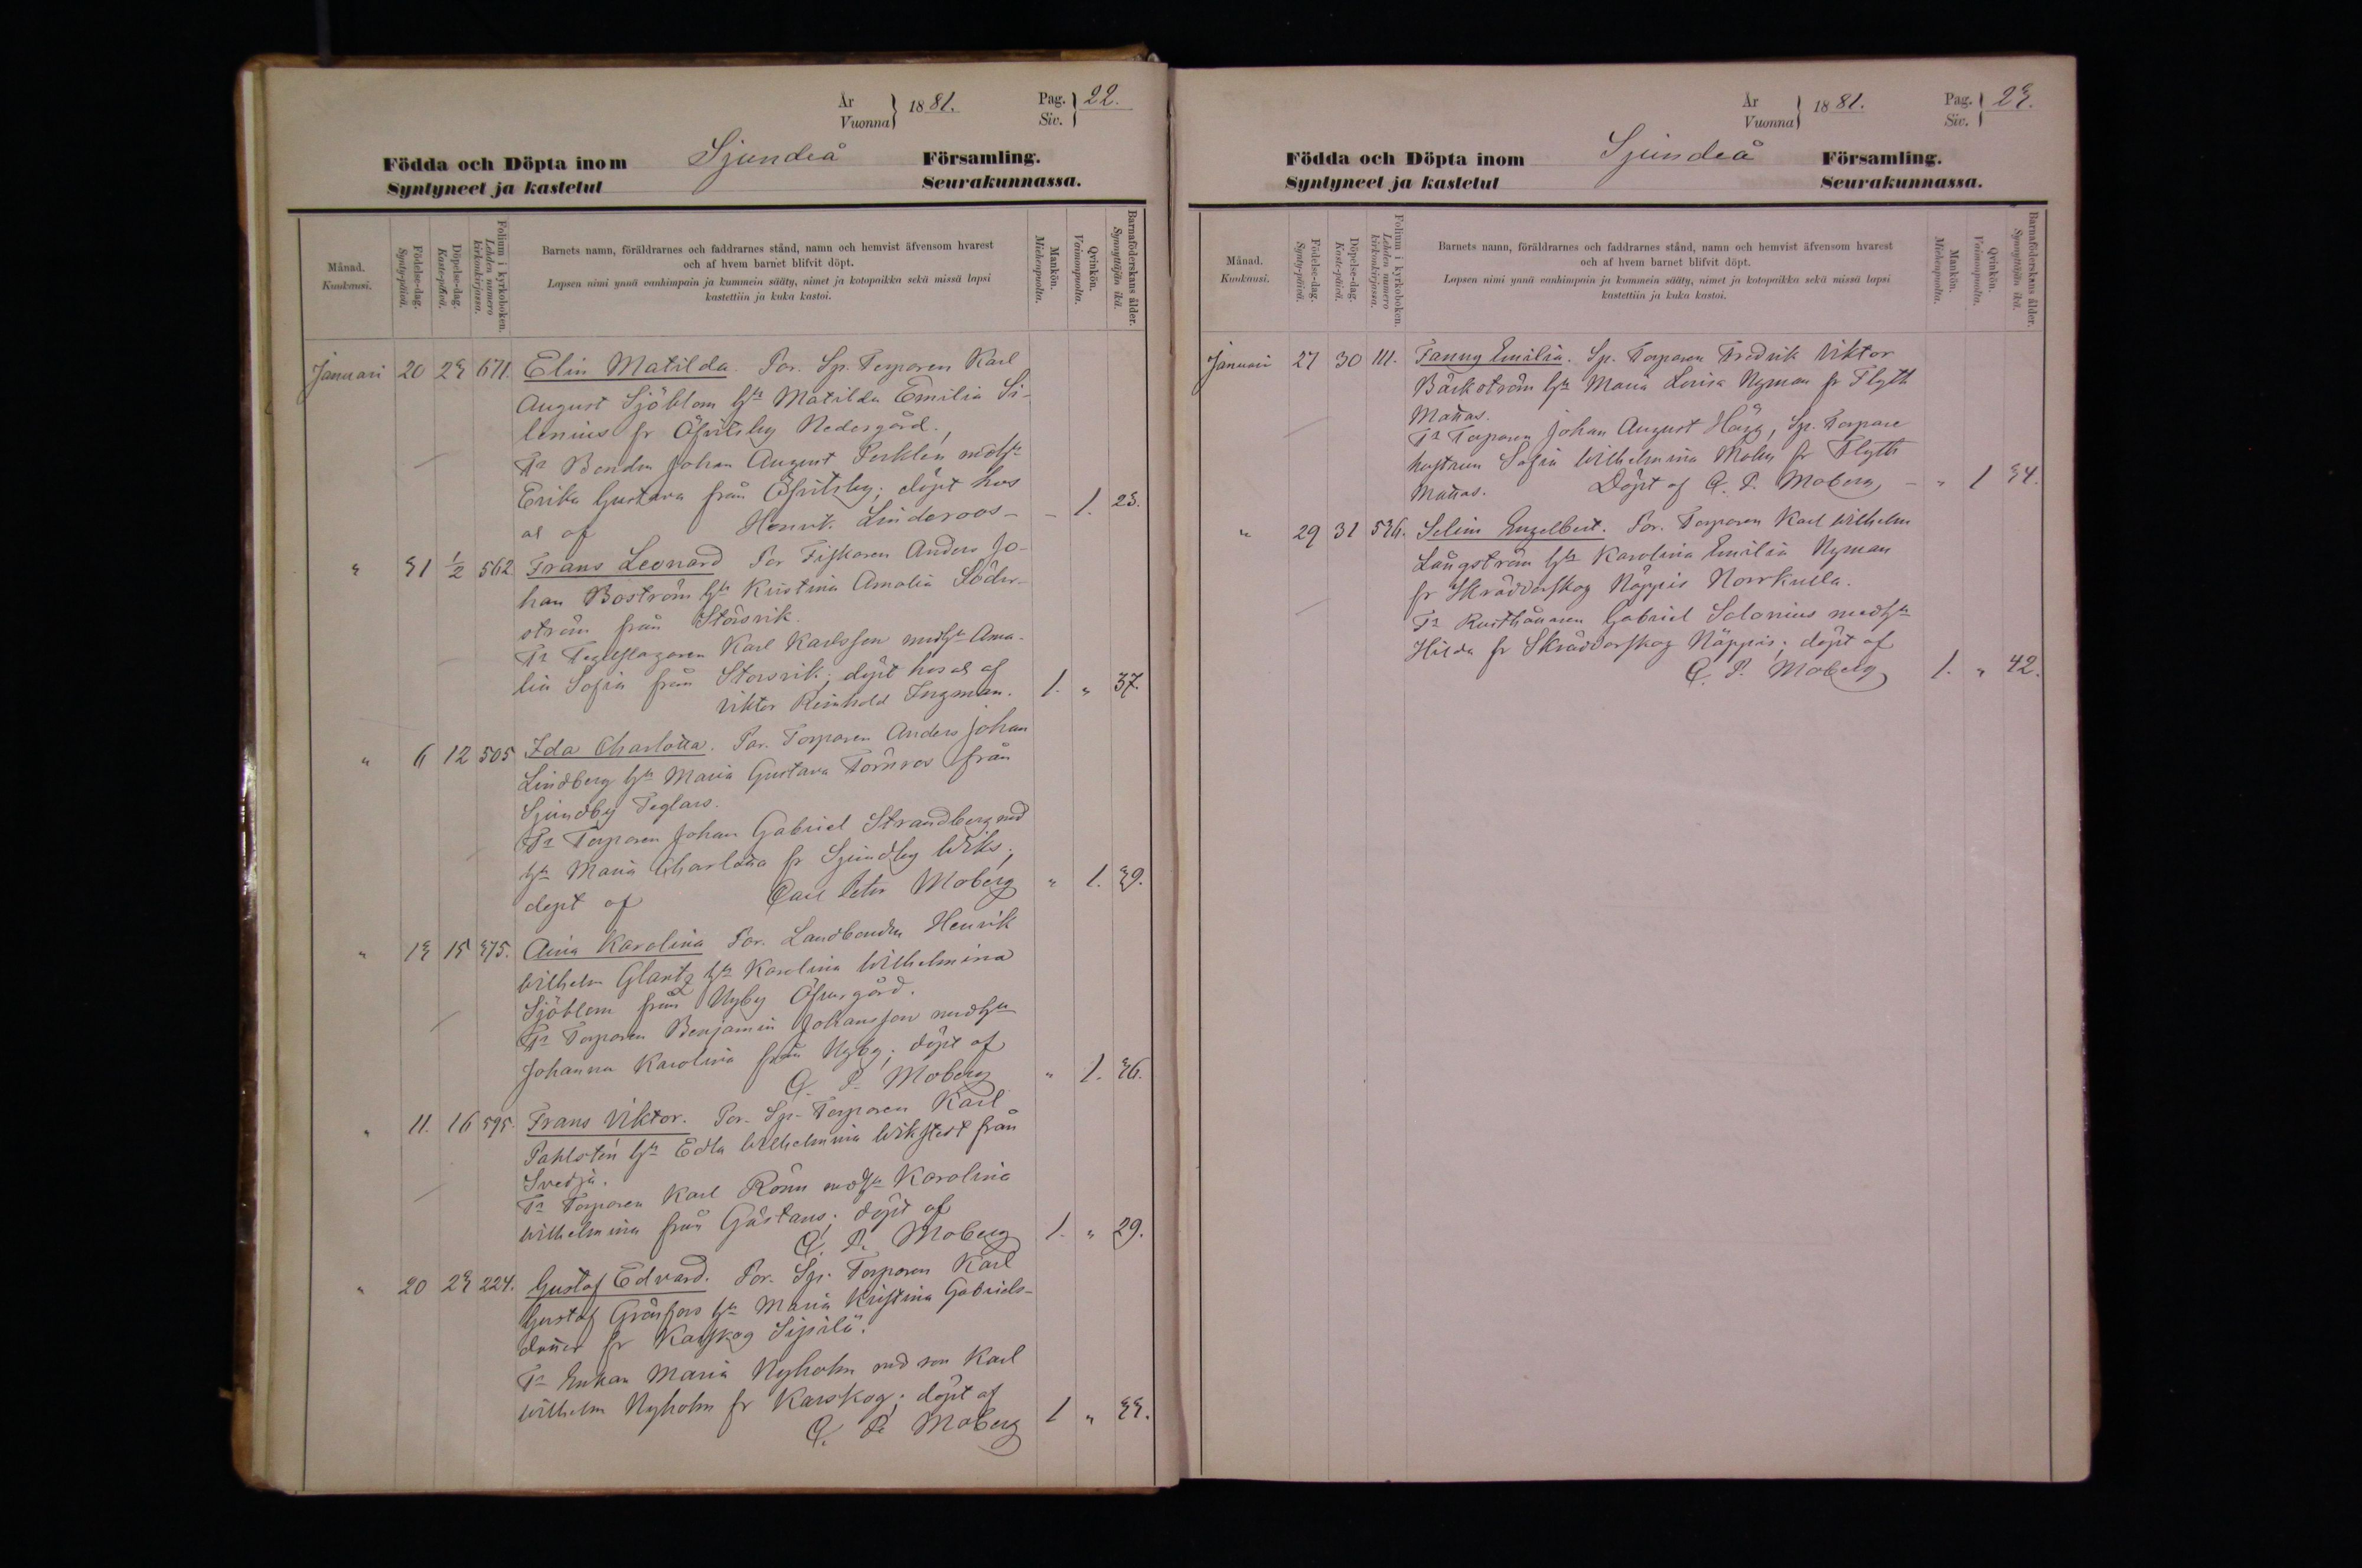 År
Vuonna } 1881.
Pag.
Siv. } 22.
Födda och Döpta inom Sjundeå Församling.
Syntyneet ja kastetut Seurakunnassa.
Månad.
Kuukausi.
Födelse-dag.
Synty-päivä.
Döpelse-dag.
Kaste-päivä.
Folium i kyrkoboken.
Lehden numero kirkonkirjassa.
Barnets namn, föräldrarnes och faddrarnes stånd, namn och hemvist äfvensom hvarest
och af hvem barnet blifvit döpt.
Lapsen nimi ynnä vanhimpain ja kummein sääty, nimet ja kotopaikka sekä missä lapsi
kastettiin ja kuka kastoi.
Mankön.
Miehenpuolta.
Qvinkön.
Vaimonpuolta.
Barnaföderskans ålder.
Synnyttäjän ikä.
Januari 20 23 671. Elin Matilda. Por. Sp. Torparen Karl
August Sjöblom hu Matilda Emilia Si-
lenius fr Öfvitsby Nedergård.
Fr Bonden Johan August Perklén med hu
Erika Gustava från Öfvitsby; döpt hos
as af Henrik Linderoos - - 1. 23.
" 31 1/2 562 Frans Leonard Por Fiskaren Anders Jo-
han Boström hu Kristina Amalia Söder-
ström från Störsvik.
Fr Tegelslagaren Karl Karlsson med hu Ama-
lia Sofia från Störsvik; döpt hos as af
Viktor Reinhold Ingman. 1. " 37.
" 6 12 505 Ida Charlotta. Por. Torparen Anders Johan
Lindberg hu Maria Gustava Törnros från
Sjundby Teglars.
Fr Torparen Johan Gabriel Strandberg med
hu Maria Charlotta fr Sjundby Wiks;
döpt af Carl Petr Moberg " 1. 39.
" 13 15 375. Aina Karolina Por. Landbonden Henrik
Wilhelm Glantz hu Karolina Wilhelmina
Sjöblom från Nyby Öfvergård.
Fr Torparen Benjamin Johansson med hu
Johanna Karolina från Nyby; döpt af
C. P. Moberg " 1. 36.
" 11. 16 595. Frans Viktor. Por. Sp. Torparen Karl
Pahlstén hu Edla Wilhelmina Wikstedt från
Svedja.
Fr Torparen Karl Rönn med hu Karolina
Wilhelmina från Gåstans; döpt af
C. P. Moberg 1. " 29.
" 20 23 224. Gustaf Edvard. Por. Sp. Torparen Karl
Gustaf Gransfors hu Maria Kristina Gabriels-
dotter fr Karskog Sipilä.
Fr Enkan Maria Nyholm med son Karl
Wilhelm Nyholm fr Karskog; döpt af
C. P. Moberg 1 " 33.
År
Vuonna } 1881.
Pag.
Siv. } 23.
Födda och Döpta inom Sjundeå Församling.
Syntyneet ja kastetut Seurakunnassa.
Månad.
Kuukausi.
Födelse-dag.
Synty-päivä.
Döpelse-dag.
Kaste-päivä.
Folium i kyrkoboken.
Lehden numero kirkonkirjassa.
Barnets namn, föräldrarnes och faddrarnes stånd, namn och hemvist äfvensom hvarest
och af hvem barnet blifvit döpt.
Lapsen nimi ynnä vanhimpain ja kummein sääty, nimet ja kotopaikka sekä missä lapsi
kastettiin ja kuka kastoi.
Mankön.
Miehenpuolta.
Qvinkön.
Vaimonpuolta.
Barnaföderskans ålder.
Synnyttäjän ikä.
Januari 27 30 111. Fanny Emilia. Sp. Torparen Fredrik Viktor
Bäckström hu Maria Lovisa Nyman fr Flyth
Mattas.
Fr Torparen Johan August Hägg, Sp. Torpare
hustrun Sofia Wilhelmina Moley fr Flyth
Mattas. Döpt af C. P. Moberg - " 1 34.
" 29 31 536. Selim Engelbert. Por. Torparen Karl Wilhelm
Långström hu Karolina Emilia Nyman
fr Skräddarskog Näppis Norrkulla.
Fr Rusthållaren Gabriel Solonius med hu
Hilda fr Skräddarskog Näppis; döpt af
C. P. Moberg 1. " 42.